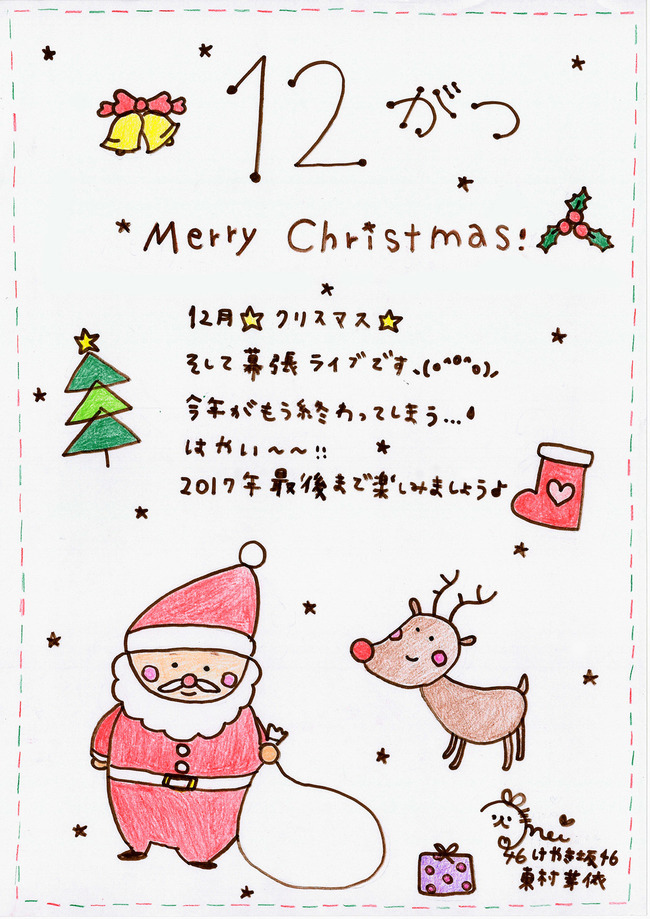 12がつ
Merry Christmas!
12月☆クリスマス☆
そして幕張ライブです、(o^o^o)、
今年がもう終わってしまう...
はやい〜〜!!
2017年最後まで楽しみましょう♪
mei
46けやき坂46
東村芽依